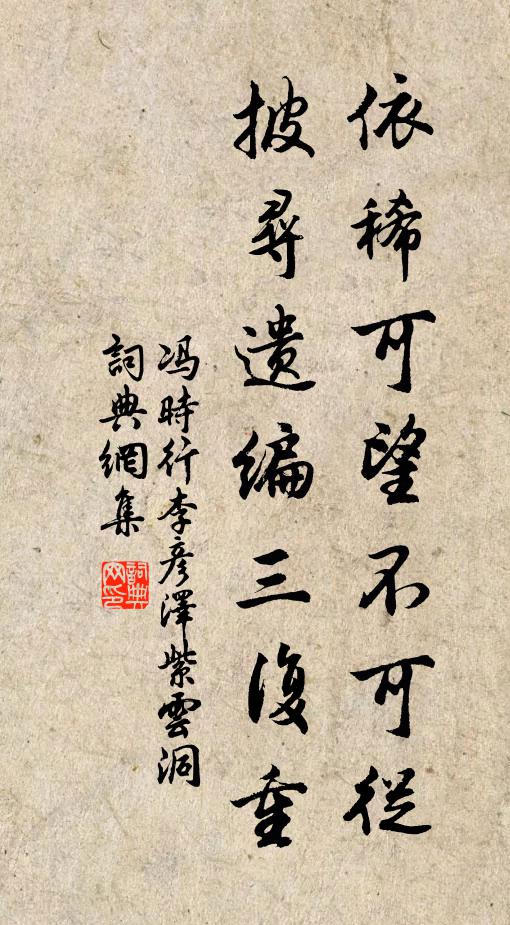 依稀可望不可從
披尋遺编三復重
冯時行李彦澤紫雲洞
詞典網集
詞典网印